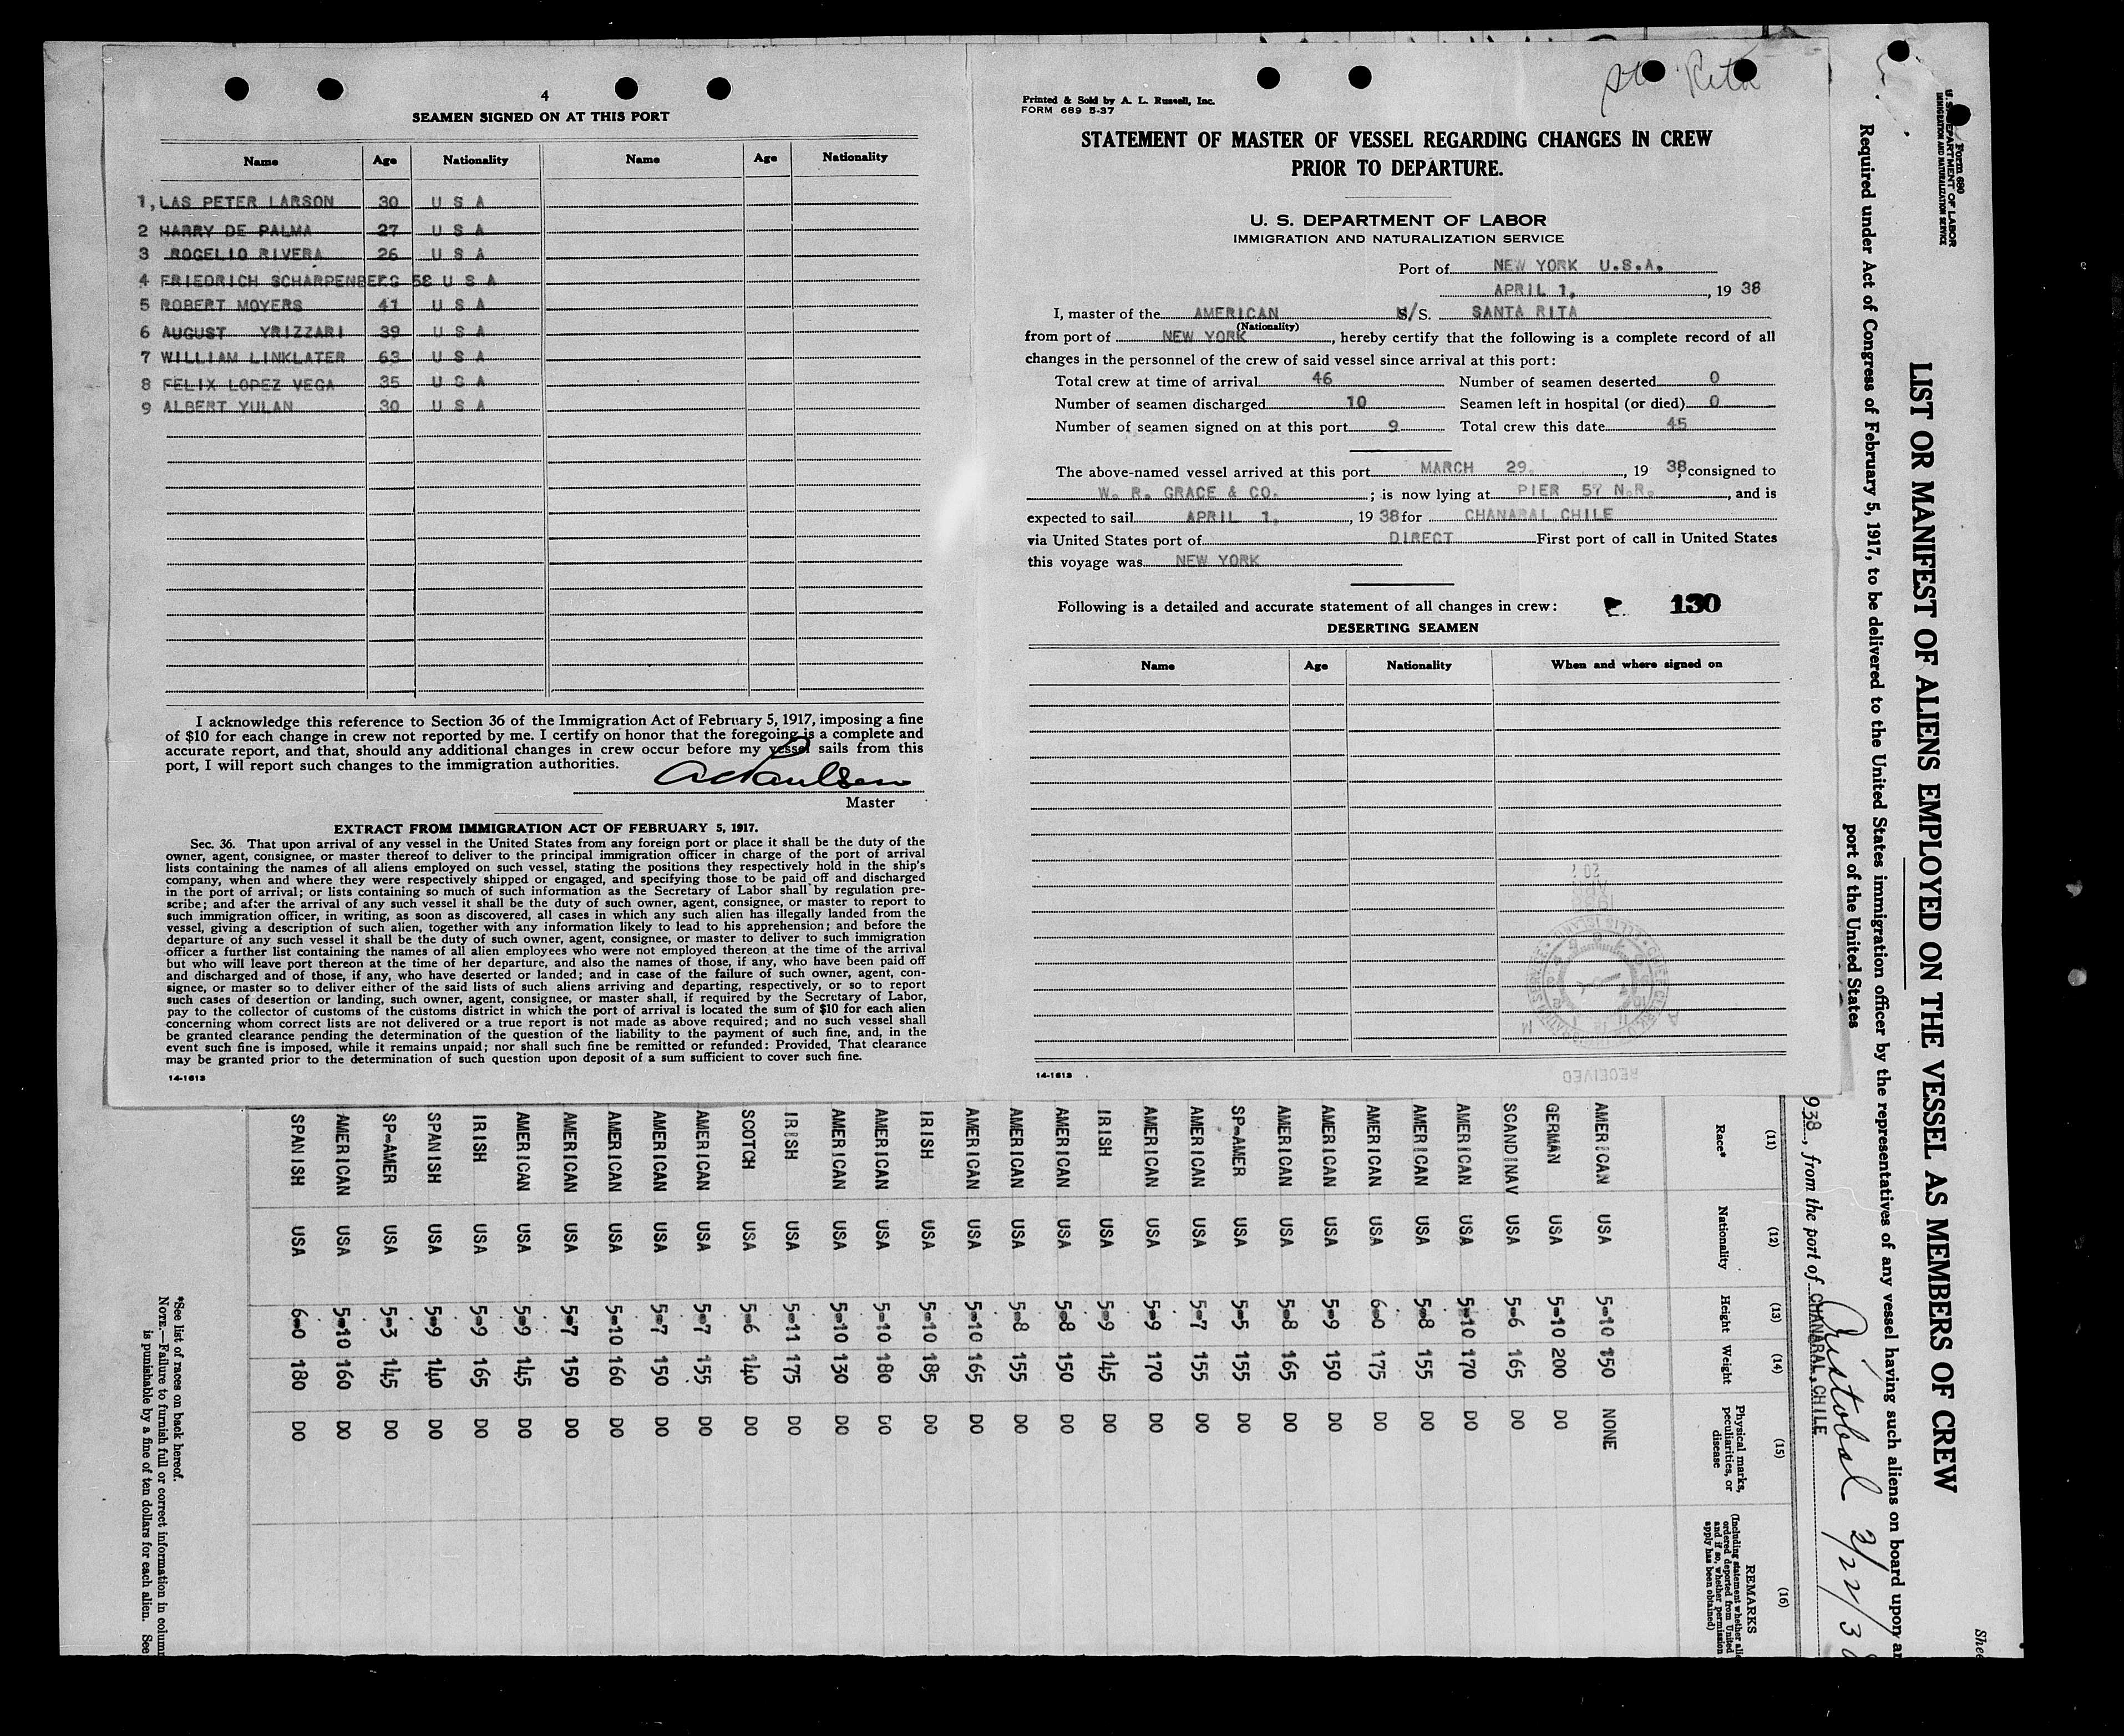 4
SEAMEN SIGNED ON AT THIS PORT
Name Age Nationality Name Age Nationality
1, LAS PETER LARSON 30 U S A
2 HARRY DE PALMA 27 U S A
3 ROGELIO RIVERA 26 U S A
4 FRIEDRICH SCHARPENBERG 58 U S A
5 ROBERT MOYERS 41 U S A
6 AUGUST YRIZZARI 39 U S A
7 WILLIAM LINKLATER 63 U S A
8 FELIX LOPEZ VEGA 35 U S A
9 ALBERT YULAN 30 U S A
I acknowledge this reference to Section 36 of the Immigration Act of February 5, 1917, imposing a fine
of $10 for each change in crew not reported by me. I certify on honor that the foregoing is a complete and
accurate report, and that, should any additional changes in crew occur before my vessel sails from this
port, I will report such changes to the immigration authorities.
Master
EXTRACT FROM IMMIGRATION ACT OF FEBRUARY 5, 1917.
Sec. 36. That upon arrival of any vessel in the United States from any foreign port or place it shall be the duty of the
owner, agent, consignee, or master thereof to deliver to the principal immigration officer in charge of the port of arrival
lists containing the names of all aliens employed on such vessel, stating the positions they respectively hold in the ship's
company, when and where they were respectively shipped or engaged, and specifying those to be paid off and discharged
in the port of arrival; or lists containing so much of such information as the Secretary of Labor shall by regulation pre-
scribe; and after the arrival of any such vessel it shall be the duty of such owner, agent, consignee, or master to report to
such immigration officer, in writing, as soon as discovered, all cases in which any such alien has illegally landed from the
vessel, giving a description of such alien, together with any information likely to lead to his apprehension; and before the
departure of any such vessel it shall be the duty of such owner, agent, consignee, or master to deliver to such immigration
officer a further list containing the names of all alien employees who were not employed thereon at the time of the arrival
but who will leave port thereon at the time of her departure, and also the names of those, if any, who have been paid off
and discharged and of those, if any, who have deserted or landed; and in case of the failure of such owner, agent, con-
signee, or master so to deliver either of the said lists of such aliens arriving and departing, respectively, or so to report
such cases of desertion or landing, such owner, agent, consignee, or master shall, if required by the Secretary of Labor,
pay to the collector of customs of the customs district in which the port of arrival is located the sum of $10 for each alien
concerning whom correct lists are not delivered or a true report is not made as above required; and no such vessel shall
be granted clearance pending the determination of the question of the liability to the payment of such fine, and, in the
event such fine is imposed, while it remains unpaid; nor shall such fine be remitted or refunded: Provided, That clearance
may be granted prior to the determination of such question upon deposit of a sum sufficient to cover such fine.
14-1613
Sta Rita
Printed & Sold by A. L. Russell, Inc.
FORM 689 5-37
STATEMENT OF MASTER OF VESSEL REGARDING CHANGES IN CREW
PRIOR TO DEPARTURE.
U. S. DEPARTMENT OF LABOR
IMMIGRATION AND NATURALIZATION SERVICE
Port of NEW YORK U.S.A.
APRIL 1, , 19 38
I, master of the AMERICAN S/S. SANTA RITA
(Nationality)
from port of NEW YORK , hereby certify that the following is a complete record of all
changes in the personnel of the crew of said vessel since arrival at this port:
Total crew at time of arrival 46 Number of seamen deserted 0
Number of seamen discharged 10 Seamen left in hospital (or died) 0
Number of seamen signed on at this port 9 Total crew this date 45
The above-named vessel arrived at this port MARCH 29. , 19 38, consigned to
W. R. GRACE & CO. ; is now lying at PIER 57 N.R. , and is
expected to sail APRIL 1. , 19 38 for CHANARAL CHILE
via United States port of DIRECT First port of call in United States
this voyage was NEW YORK
Following is a detailed and accurate statement of all changes in crew: 130
DESERTING SEAMEN
Name Age Nationality When and where signed on
RECEIVED
14-1613
Form 680
U. S. DEPARTMENT OF LABOR
IMMIGRATION AND NATURALIZATION SERVICE
LIST OR MANIFEST OF ALIENS EMPLOYED ON THE VESSEL AS MEMBERS OF CREW
Required under Act of Congress of February 5, 1917, to be delivered to the United States immigration officer by the representatives of any vessel having such aliens on board upon ar
port of the United States
Shee
Cristobal 3/22/38
938, from the port of CHANARAL, CHILE
(11) (12) (13) (14) (15) (16)
Race* Nationality Height Weight Physical marks, peculiarities, or disease REMARKS
(Including statement whether alie
ordered deported from United
and if so, whether permission
apply has been obtained)
AMERICAN USA 5-10 150 NONE
GERMAN USA 5-10 200 DO
SCANDINAV USA 5-6 165 DO
AMERICAN USA 5-10 170 DO
AMERICAN USA 5-8 155 DO
AMERICAN USA 6-0 175 DO
AMERICAN USA 5-9 150 DO
AMERICAN USA 5-8 165 DO
SP-AMER USA 5-5 155 DO
AMERICAN USA 5-7 155 DO
AMERICAN USA 5-9 170 DO
IRISH USA 5-9 145 DO
AMERICAN USA 5-8 150 DO
AMERICAN USA 5-8 155 DO
AMERICAN USA 5-10 165 DO
IRISH USA 5-10 185 DO
AMERICAN USA 5-10 180 DO
AMERICAN USA 5-10 130 DO
IRISH USA 5-11 175 DO
SCOTCH USA 5-6 140 DO
AMERICAN USA 5-7 155 DO
AMERICAN USA 5-7 150 DO
AMERICAN USA 5-10 160 DO
AMERICAN USA 5-7 150 DO
AMERICAN USA 5-9 145 DO
IRISH USA 5-9 165 DO
SPANISH USA 5-9 140 DO
SP-AMER USA 5-3 145 DO
AMERICAN USA 5-10 160 DO
SPANISH USA 6-0 180 DO
*See list of races on back hereof.
NOTE.—Failure to furnish full or correct information in column
is punishable by a fine of ten dollars for each alien. See